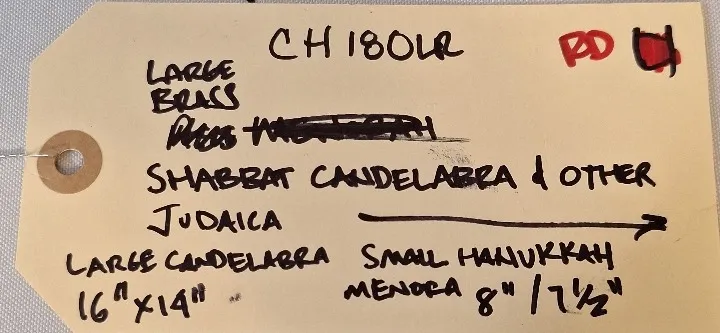 CH 180LR RD
LARGE
BRASS
SHABBAT CANDELABRA & OTHER
JUDAICA
LARGE CANDELABRA
16" X 14"
SMALL HANUKKAH
MENORA 8" / 7 1/2"